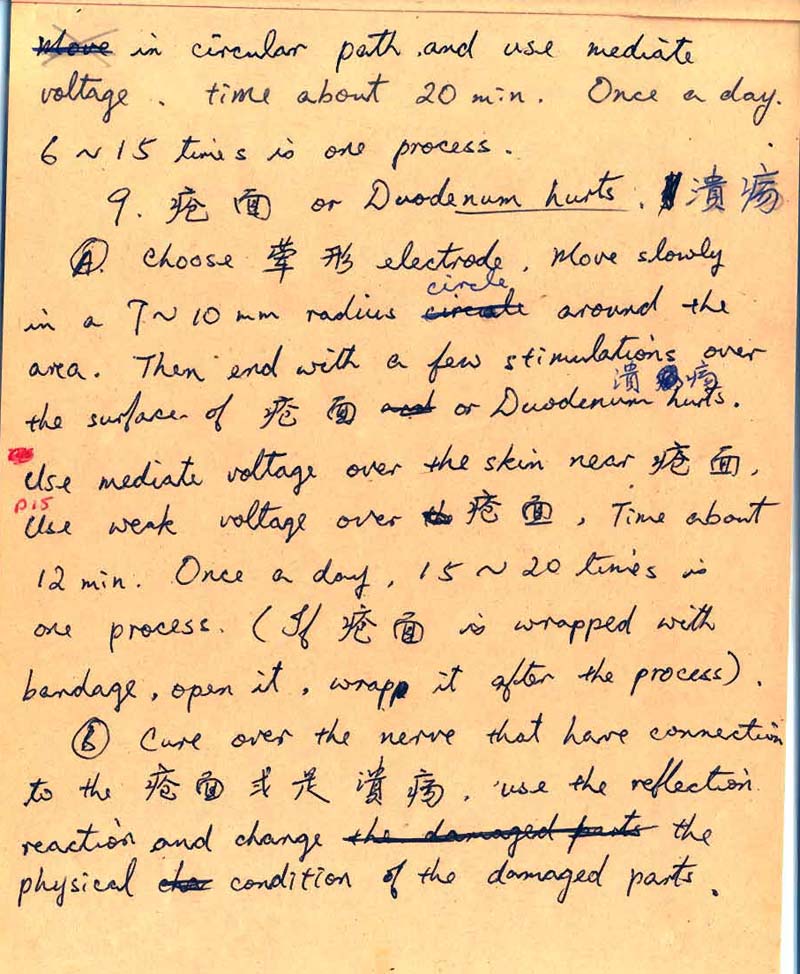 Move in circular path, and use mediate
voltage. time about 20 min. Once a day.
6 ~ 15 times is one process.
9. 疮面 or Duodenum hurts. 潰瘍
Ⓐ. choose 蕈形 electrode, Move slowly
circle
in a 7 ~ 10 mm radius circule around the
area. Then end with a few stimulations over
潰瘍
the surface of 疮面 and or Duodenum hurts.
Use mediate voltage over the skin near 疮面,
P15
Use weak voltage over th 疮面, Time about
12 min. Once a day, 15 ~ 20 times is
one process. (If 疮面 is wrapped with
bandage, open it, wrapp it after the process).
Ⓑ Cure over the nerve that have connection
to the 疮面或是潰瘍, use the reflection
reaction and change the damaged parts the
physical cha condition of the damaged parts.